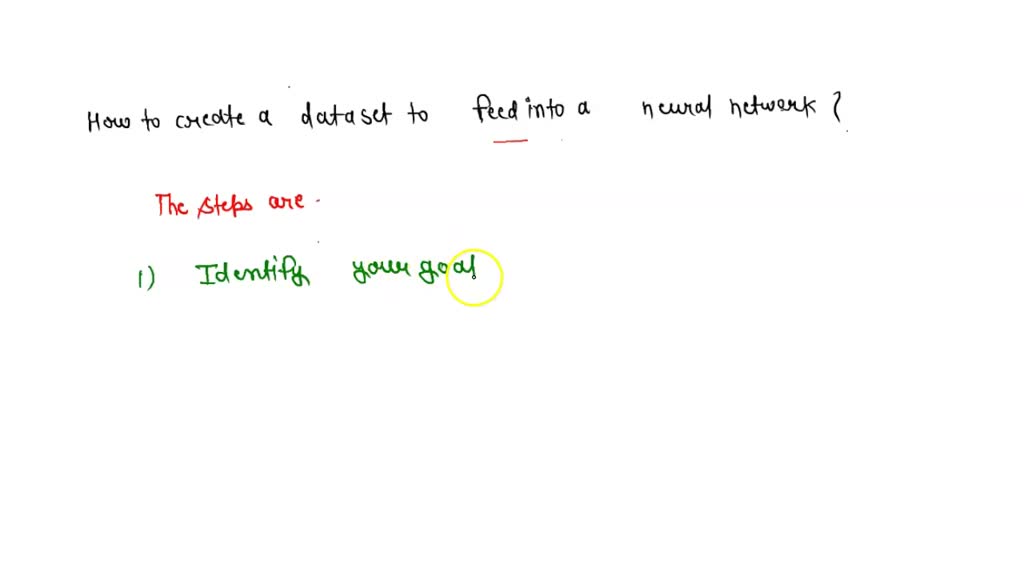 How to create a dataset to feed into a neural network?
The steps are
1) Identify your goal